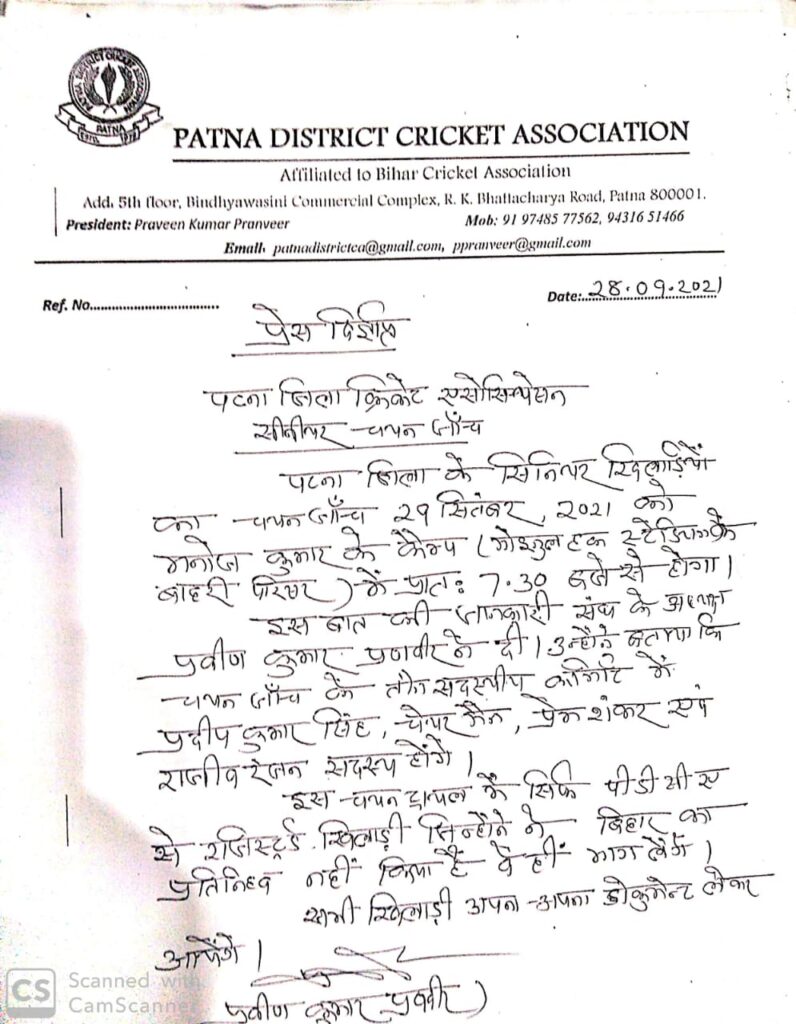 PATNA DISTRICT CRICKET ASSOCIATION
PATNA
PATNA DISTRICT CRICKET ASSOCIATION
Affiliated to Bihar Cricket Association
Add. 5th floor, Bindhyawasini Commercial Complex, R. K. Bhattacharya Road, Patna 800001.
President: Praveen Kumar Pranveer Mob: 91 97485 77562, 94316 51466
Email. patnadistrictca@gmail.com, ppranveer@gmail.com
Ref. No................................ Date:..28.09.2021
प्रेस विज्ञप्ति
पटना जिला क्रिकेट एसोसिएशन
सीनीयर चयन जाँच
पटना जिला के सिनियर खिलाड़ियों
का चयन जाँच 29 सितंबर, 2021 को
मनोज कुमार के कैम्प (मोइनुल हक स्टेडियम के
बाहरी परिसर) में प्रातः 7.30 बजे से होगा।
इस बात की जानकारी संघ के अध्यक्ष
प्रवीण कुमार प्रणवीर ने दी। उन्होंने बताया कि
चयन जाँच के तीन सदस्यीय कमिटि में
प्रदीप कुमार सिंह, चेयर मैन, प्रेम शंकर एवं
राजीव रंजन सदस्य होंगे।
इस चयन ट्रायल में सिर्फ पीडीसीए
से रजिस्ट्रर्ड खिलाड़ी जिन्होंने ने बिहार का
प्रतिनिधित्व नहीं किया है वे हीं भाग लेंगे।
सभी खिलाड़ी अपना-अपना डोकुमेन्ट लेकर
आयेंगे।
प्रवीण कुमार प्रणवीर)
CS Scanned with
CamScanner